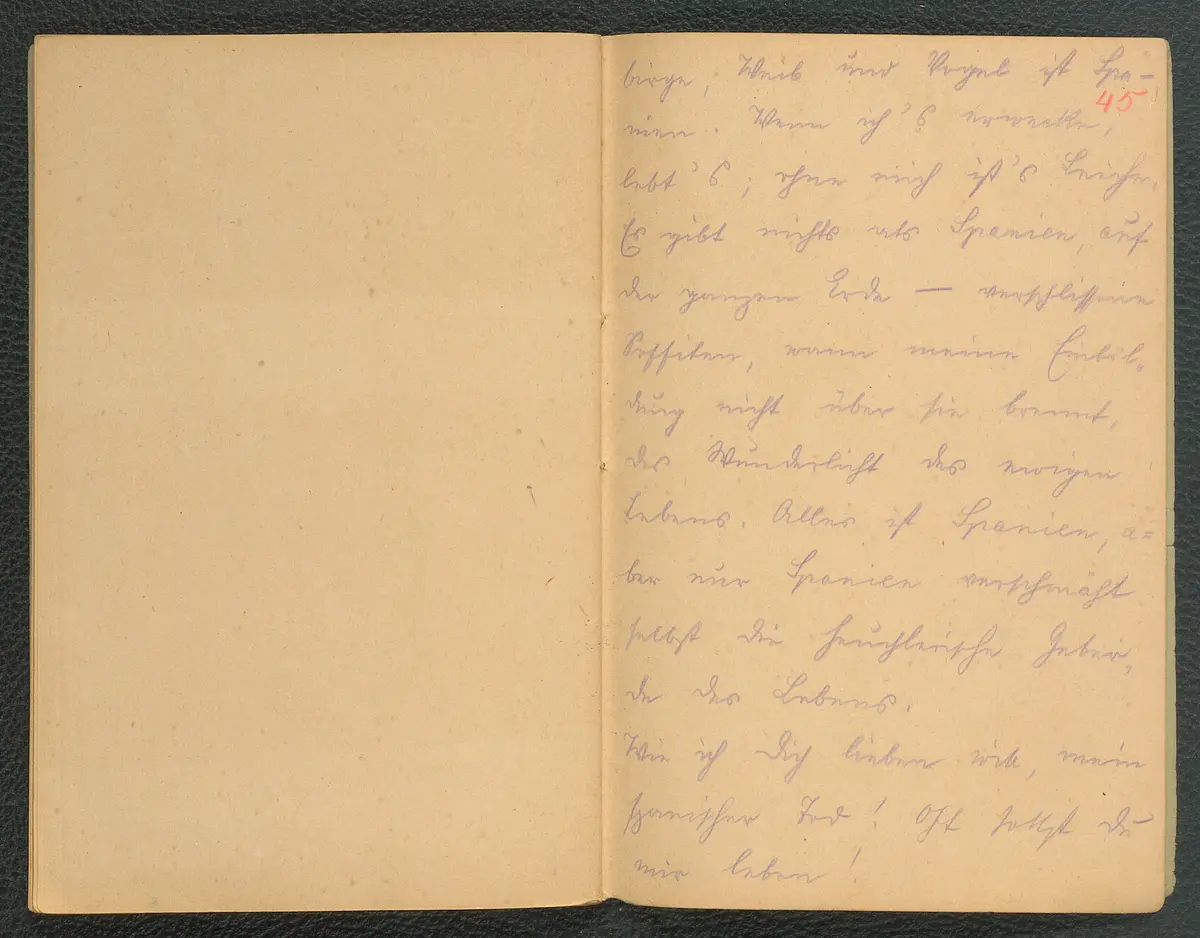 birge, Weib und Vogel ist Spa-
45
nien. Wenn ich's erwecke,
lebt's; ohne mich ist's Leiche.
Es gibt nichts als Spanien, auf
der ganzen Erde — verschlissene
Soffiten, wann meine Einbil-
dung nicht über sie brennt,
das Wunderlicht des ewigen
Lebens. Alles ist Spanien, a=
ber nur Spanien verschmäht
selbst die heuchlerische Geber-
de des Lebens.
Wie ich Dich lieben will, mein
spanischer Tod! Oft sollst du
mir leben!